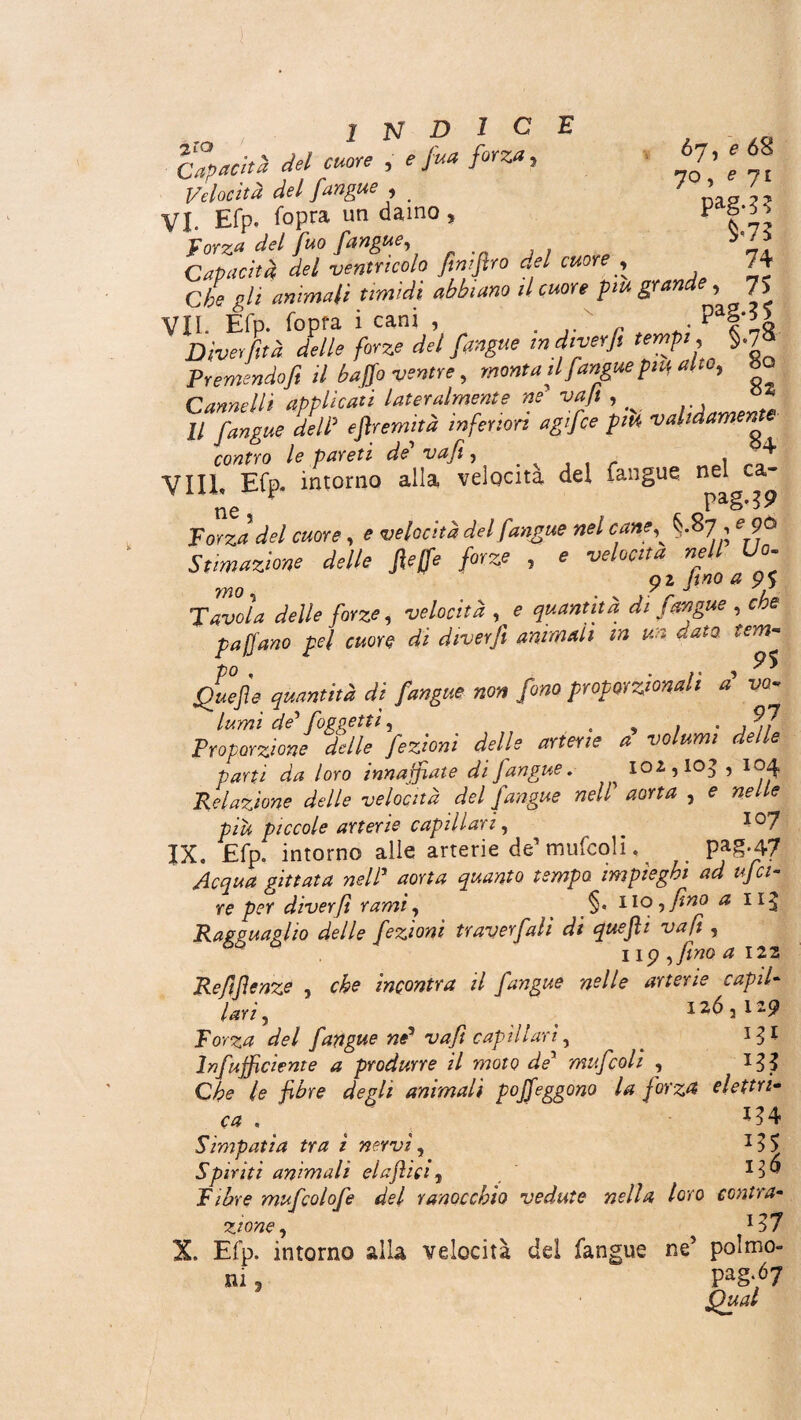 210 INDICE
Capacità del cuore , e ſua forza, 67, e 68
Velocità del ſangue , 70, e 71
VI. Eſp. ſopra un daino , pag.33
Forza del ſuo ſangue, §.73
Capacità del ventricolo ſiniſtro del cuore , 74
Che gli animali timidi abbiano il cuore più grande , 75
VII. Eſp. ſopra i cani , pag.35
Diverſità delle forze del ſangue in diverſi tempi, §.78
Premendoſi il baſſo ventre, monta il ſangue più alto, 80
Cannelli applicati lateralmente ne' vaſi , 82
Il ſangue dell' eſtremità inferiori agiſce più validamente
contro le pareti de' vaſi, 84
VIII. Eſp. intorno alla velocità del ſangue nel ca-
ne , pag.39
Forza del cuore, e velocità del ſangue nel cane, §.87, e 90
Stimazione delle ſteſſe forze , e velocità nell' Uo-
mo , 92 fino a 95
Tavola delle forze, velocità , e quantità di ſangue , che
paſſano pel cuore di diverſi animali in un dato tem-
po , 95
Queſte quantità di ſangue non ſono proporzionali a' vo-
lumi de' ſoggetti, 97
Proporzione delle ſezioni delle arterie a' volumi delle
parti da loro innaffiate di ſangue. 102, 103, 104
Relazione delle velocità del ſangue nell' aorta , e nelle
più piccole arterie capillari, 107
IX. Eſp. intorno alle arterie de' muſcoli, pag.47
Acqua gittata nell' aorta quanto tempo impieghi ad uſci-
re per diverſi rami, §. 110, fino a 113
Ragguaglio delle ſezioni traverſali di queſti vaſi ,
119, fino a 122
Reſiſtenze , che incontra il ſangue nelle arterie capil-
lari, 126, 129
Forza del ſangue ne' vaſi capillari, 131
Inſufficiente a produrre il moto de' muſcoli , 133
Che le fibre degli animali poſſeggono la forza elettri-
ca . 134
Simpatia tra i nervi, 135
Spiriti animali elaſtici, 136
Fibre muſcoloſe del ranocchio vedute nella loro contra-
zione, 137
X. Eſp. intorno alla velocità del ſangue ne' polmo-
ni, pag.67
Qual